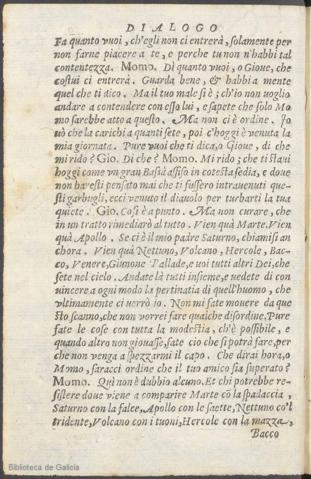 DIALOGO
Fa quanto vuoi, ch'egli non ci entrerà, solamente per
non farne piacere a te, e perche tu non n'habbi tal
contentezza. Momo. Di quanto vuoi, o Gioue, che
costui ci entrerà. Guarda bene, & habbi a mente
quel che ti dico. Ma il tuo male si è; ch'io non uoglio
andare a contendere con esso lui, e sapete che solo Mo
mo sarebbe atto a questo. Ma non ci è ordine. Io
uò che la carichi a quanti sete, poi c'hoggi è venuta la
mia giornata. Pure vuoi che ti dica, o Gioue, di che
mi rido? Gio. Di che? Momo. Mi rido; che ti staui
hoggi come un gran Basià assiso in cotesta sedia, e doue
non haresti pensato mai che ti fussero intrauenuti que-
sti garbugli, ecci venuto il diauolo per turbarti la tua
quiete. Gio. Cosi è a punto. Ma non curare, che
in un tratto rimediarò al tutto. Vien quà Marte. Vien
quà Apollo. Se ci è il mio padre Saturno, chiamisi an
chora. Vien quà Nettuno, Volcano, Hercole, Bac-
co, Venere, Giunone Pallade, e uoi tutti altri Dei, che
sete nel cielo. Andate là tutti insieme, e uedete di con
uincere a ogni modo la pertinatia di quell'huomo, che
vltimamente ci uerrò io. Non mi fate mouere da que
sto scanno, che non vorrei fare qualche disordine. Pure
fate le cose con tutta la modestia, ch'è possibile, e
quando altro non giouasse, fate ciò che si potrà fare, per
che non venga a spezzarmi il capo. Che dirai hora, o
Momo, saracci ordine che il tuo amico sia superato?
Momo. Quì non è dubbio alcuno. Et chi potrebbe re-
sistere doue viene a comparire Marte cō la spadaccia,
Saturno con la falce, Apollo con le saette, Nettuno co'l
tridente, Volcano con i tuoni, Hercole con la mazza,
Bacco
Biblioteca de Galicia